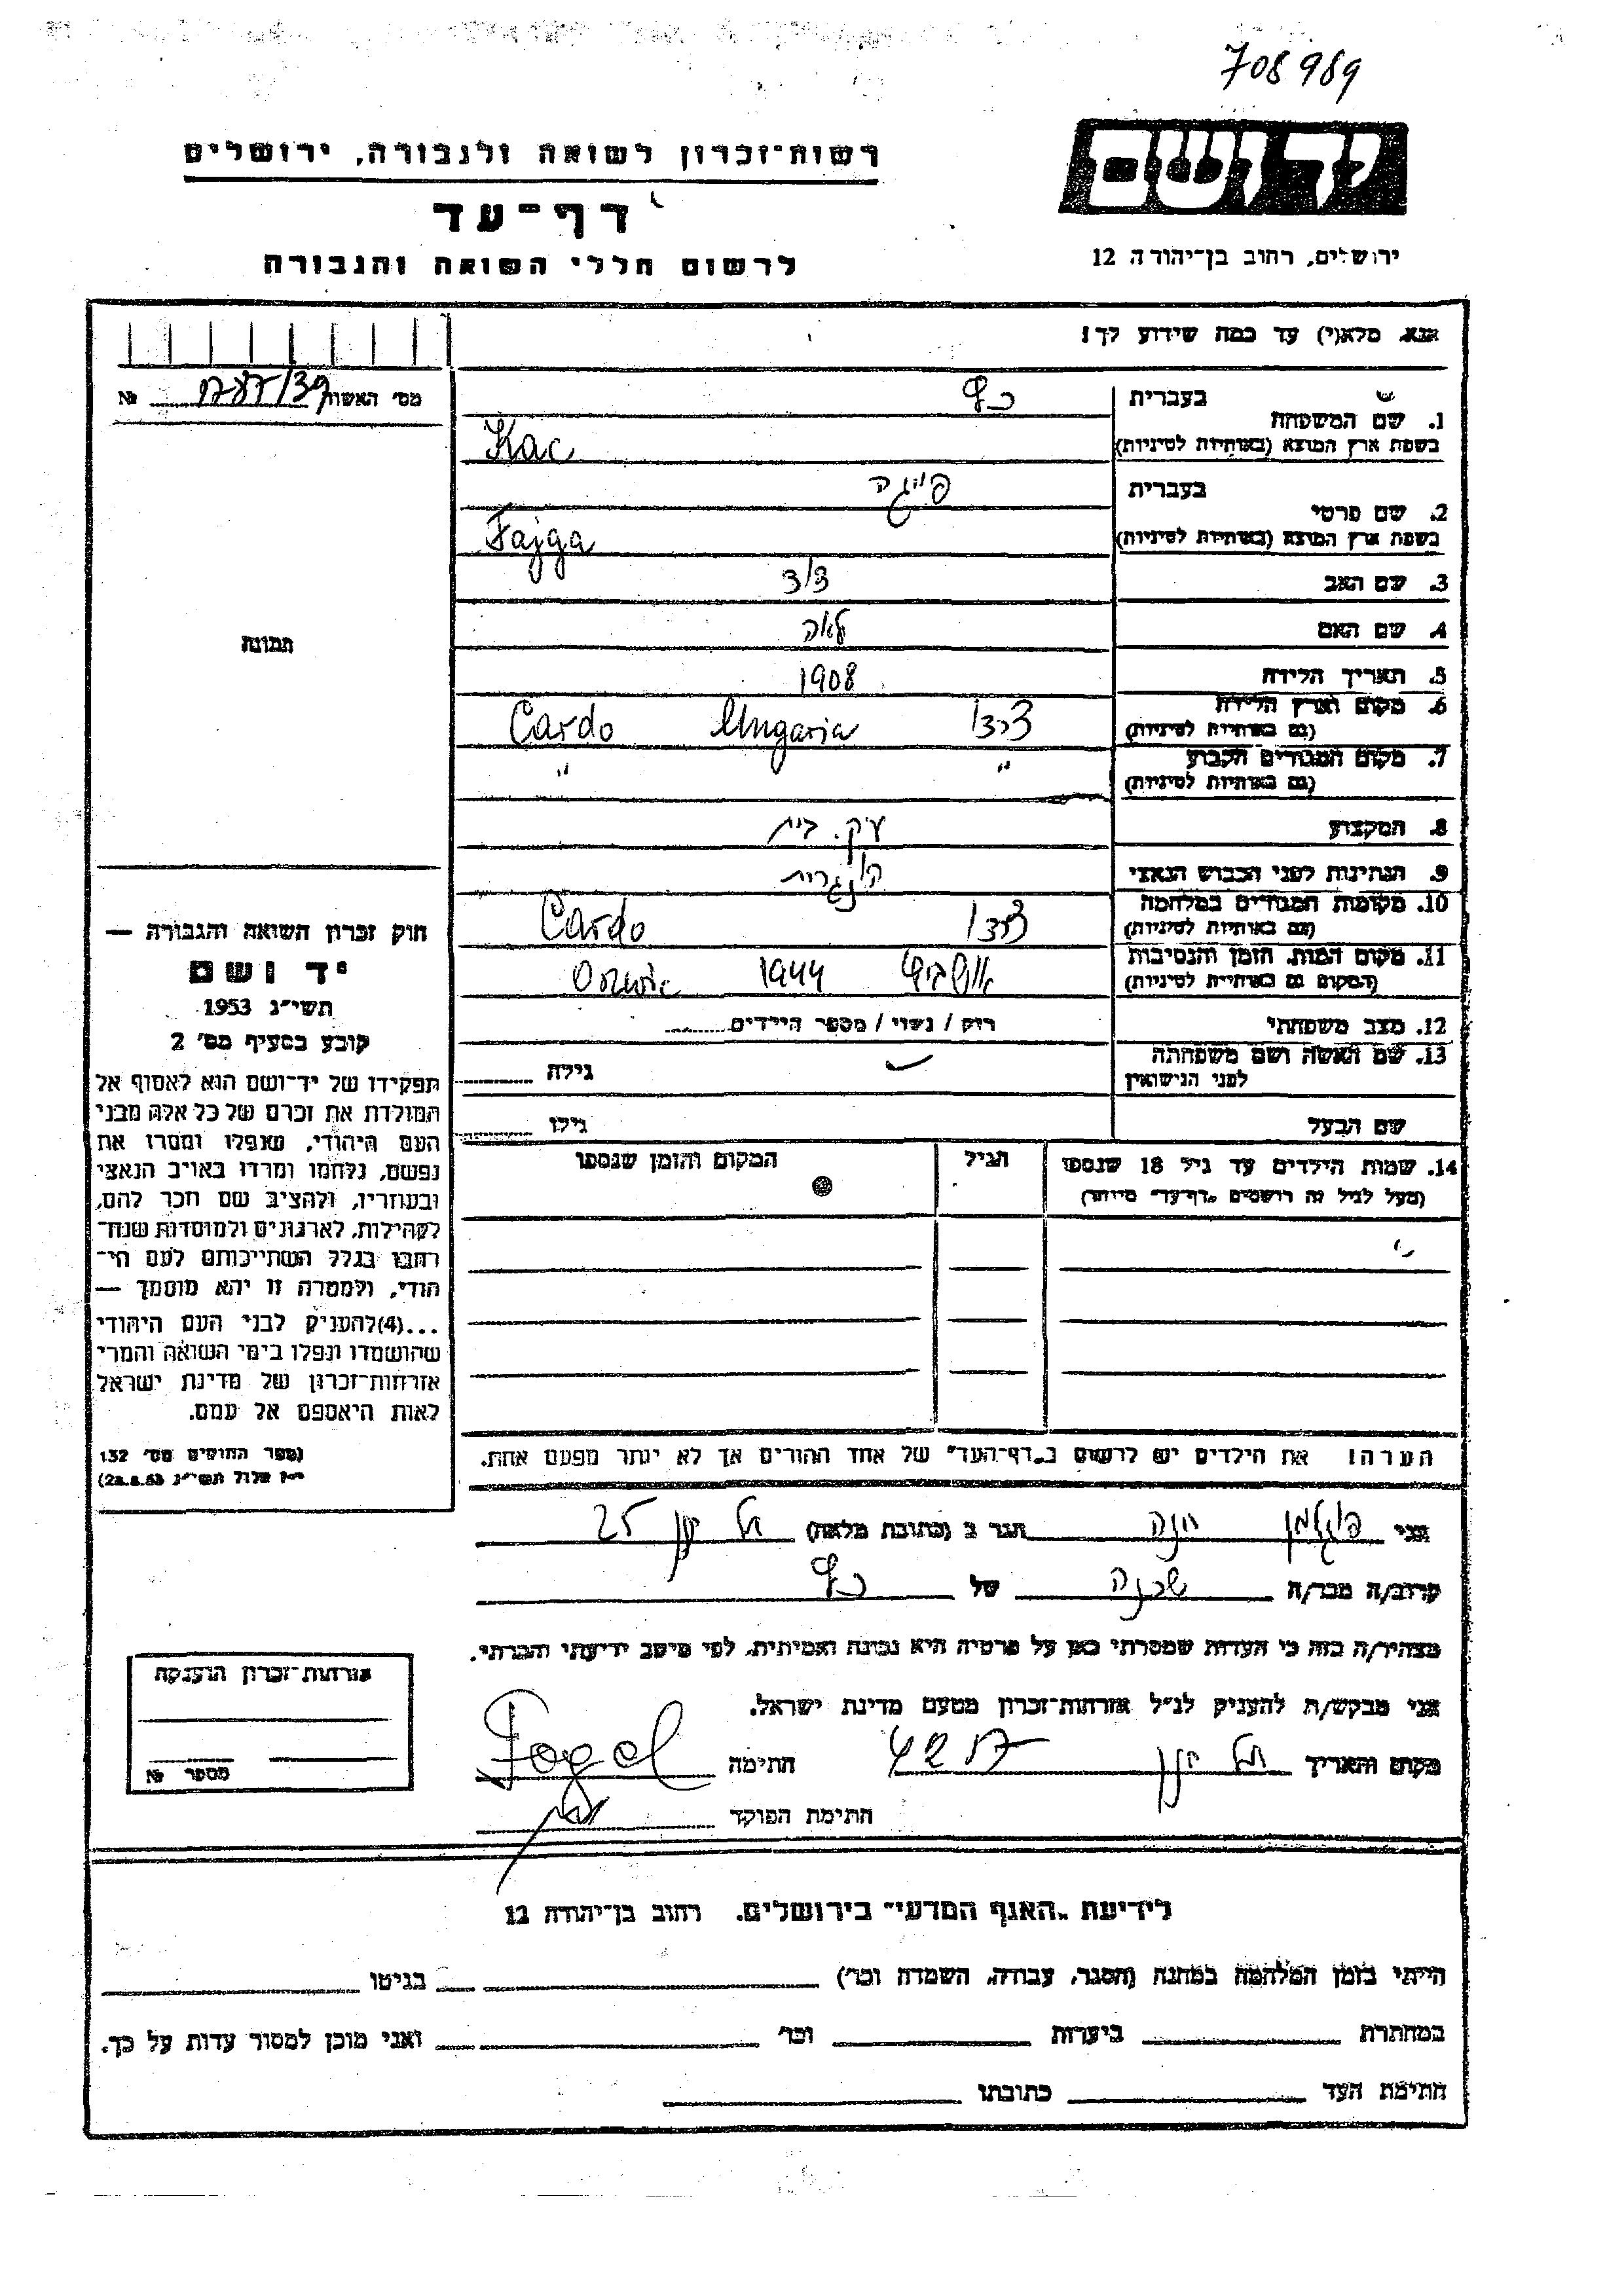 708989
יד ושם
רשות־זכרון לשואה ולגבורה, ירושלים
דף־עד
לרשום חללי השואה והגבורה
ירושלים, רחוב בן־יהודה 12
אנא, מלא(י) עד כמה שידוע לך!
מס׳ האשות №
1. שם המשפחה בעברית כץ
בשפת ארץ המוצא (באותיות לטיניות) Kac
2. שם פרטי בעברית פייגה
בשפת ארץ המוצא (באותיות לטיניות) Fajga
3. שם האב
4. שם האם לאה
5. תאריך הלידה 1908
6. מקום וארץ הלידה (גם באותיות לטיניות) צרדו Ungaria Cardo
7. מקום המגורים הקבוע (גם באותיות לטיניות) " "
8. המקצוע עק. בית
9. הנתינות לפני הכבוש הנאצי הונגרית
10. מקומות המגורים במלחמה (גם באותיות לטיניות) צרדו Cardo
11. מקום המות, הזמן והנסיבות (המקום גם באותיות לטיניות) 1944
12. מצב משפחתי רוק / נשוי / מספר הילדים
13. שם האשה ושם משפחתה לפני הנישואין גילה
שם הבעל גילו
14. שמות הילדים עד גיל 18 שנספו הגיל המקום והזמן שנספו
(מעל לגיל זה רושמים „דף־עד״ מיוחד)
הערה! את הילדים יש לרשום ב„דף־העד״ של אחד ההורים אך לא יותר מפעם אחת.
תמונה
חוק זכרון השואה והגבורה —
יד ושם
תשי״ג 1953
קובע בסעיף מס׳ 2
תפקידו של יד־ושם הוא לאסוף אל
המולדת את זכרם של כל אלה מבני
העם היהודי, שנפלו ומסרו את
נפשם, נלחמו ומרדו באויב הנאצי
ובעוזריו, ולהציב שם וזכר להם,
לקהילות, לארגונים ולמוסדות שנח־
רבו בגלל השתייכותם לעם הי־
הודי, ולמטרה זו יהא מוסמך —
...(4)להעניק לבני העם היהודי
שהושמדו ונפלו בימי השואה והמרי
אזרחות־זכרון של מדינת ישראל
לאות היאספם אל עמם.
(ספר החוקים מס׳ 132
י״ז אלול תשי״ג 28.8.53)
אני חנה הגר ב (כתובת מלאה) 25
קרוב/ה מכר/ה שכנה של כץ
מצהיר/ה בזה כי העדות שמסרתי כאן על פרטיה היא נכונה ואמיתית, לפי מיטב ידיעתי והכרתי.
אני מבקש/ת להעניק לנ״ל אזרחות־זכרון מטעם מדינת ישראל.
מקום ותאריך חתימה Fogel
חתימת הפוקד
אזרחות־זכרון הוענקה
מספר №
לידיעת „האגף המדעי״ בירושלים. רחוב בן־יהודה 12
הייתי בזמן המלחמה במחנה (הסגר, עבודה, השמדה וכו׳) בגיטו
במחתרת ביערות וכו׳ ואני מוכן למסור עדות על כך.
חתימת העד כתובתו